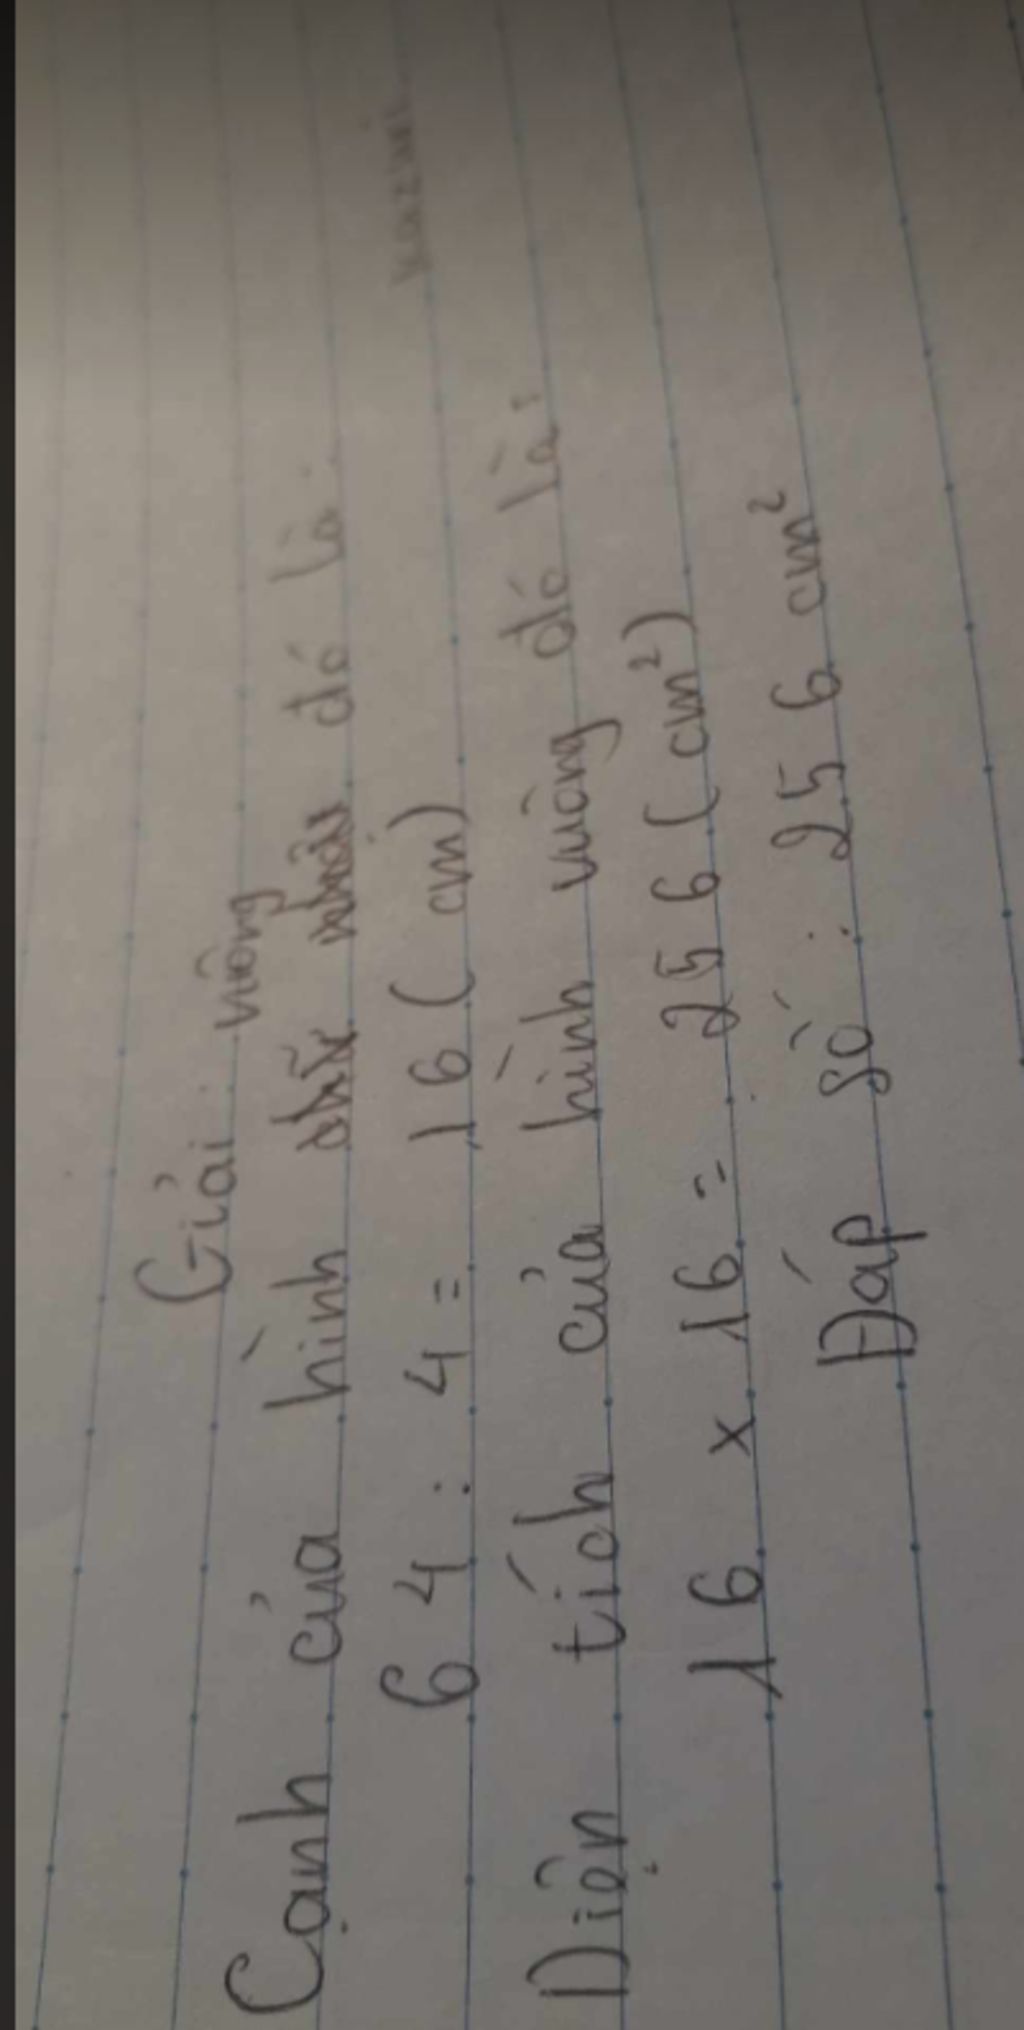 Giải
Cạnh của hình vuông đó là:
64 : 4 = 16 (cm)
Diện tích của hình vuông đó là:
16 x 16 = 256 (cm²)
Đáp số: 256 cm²